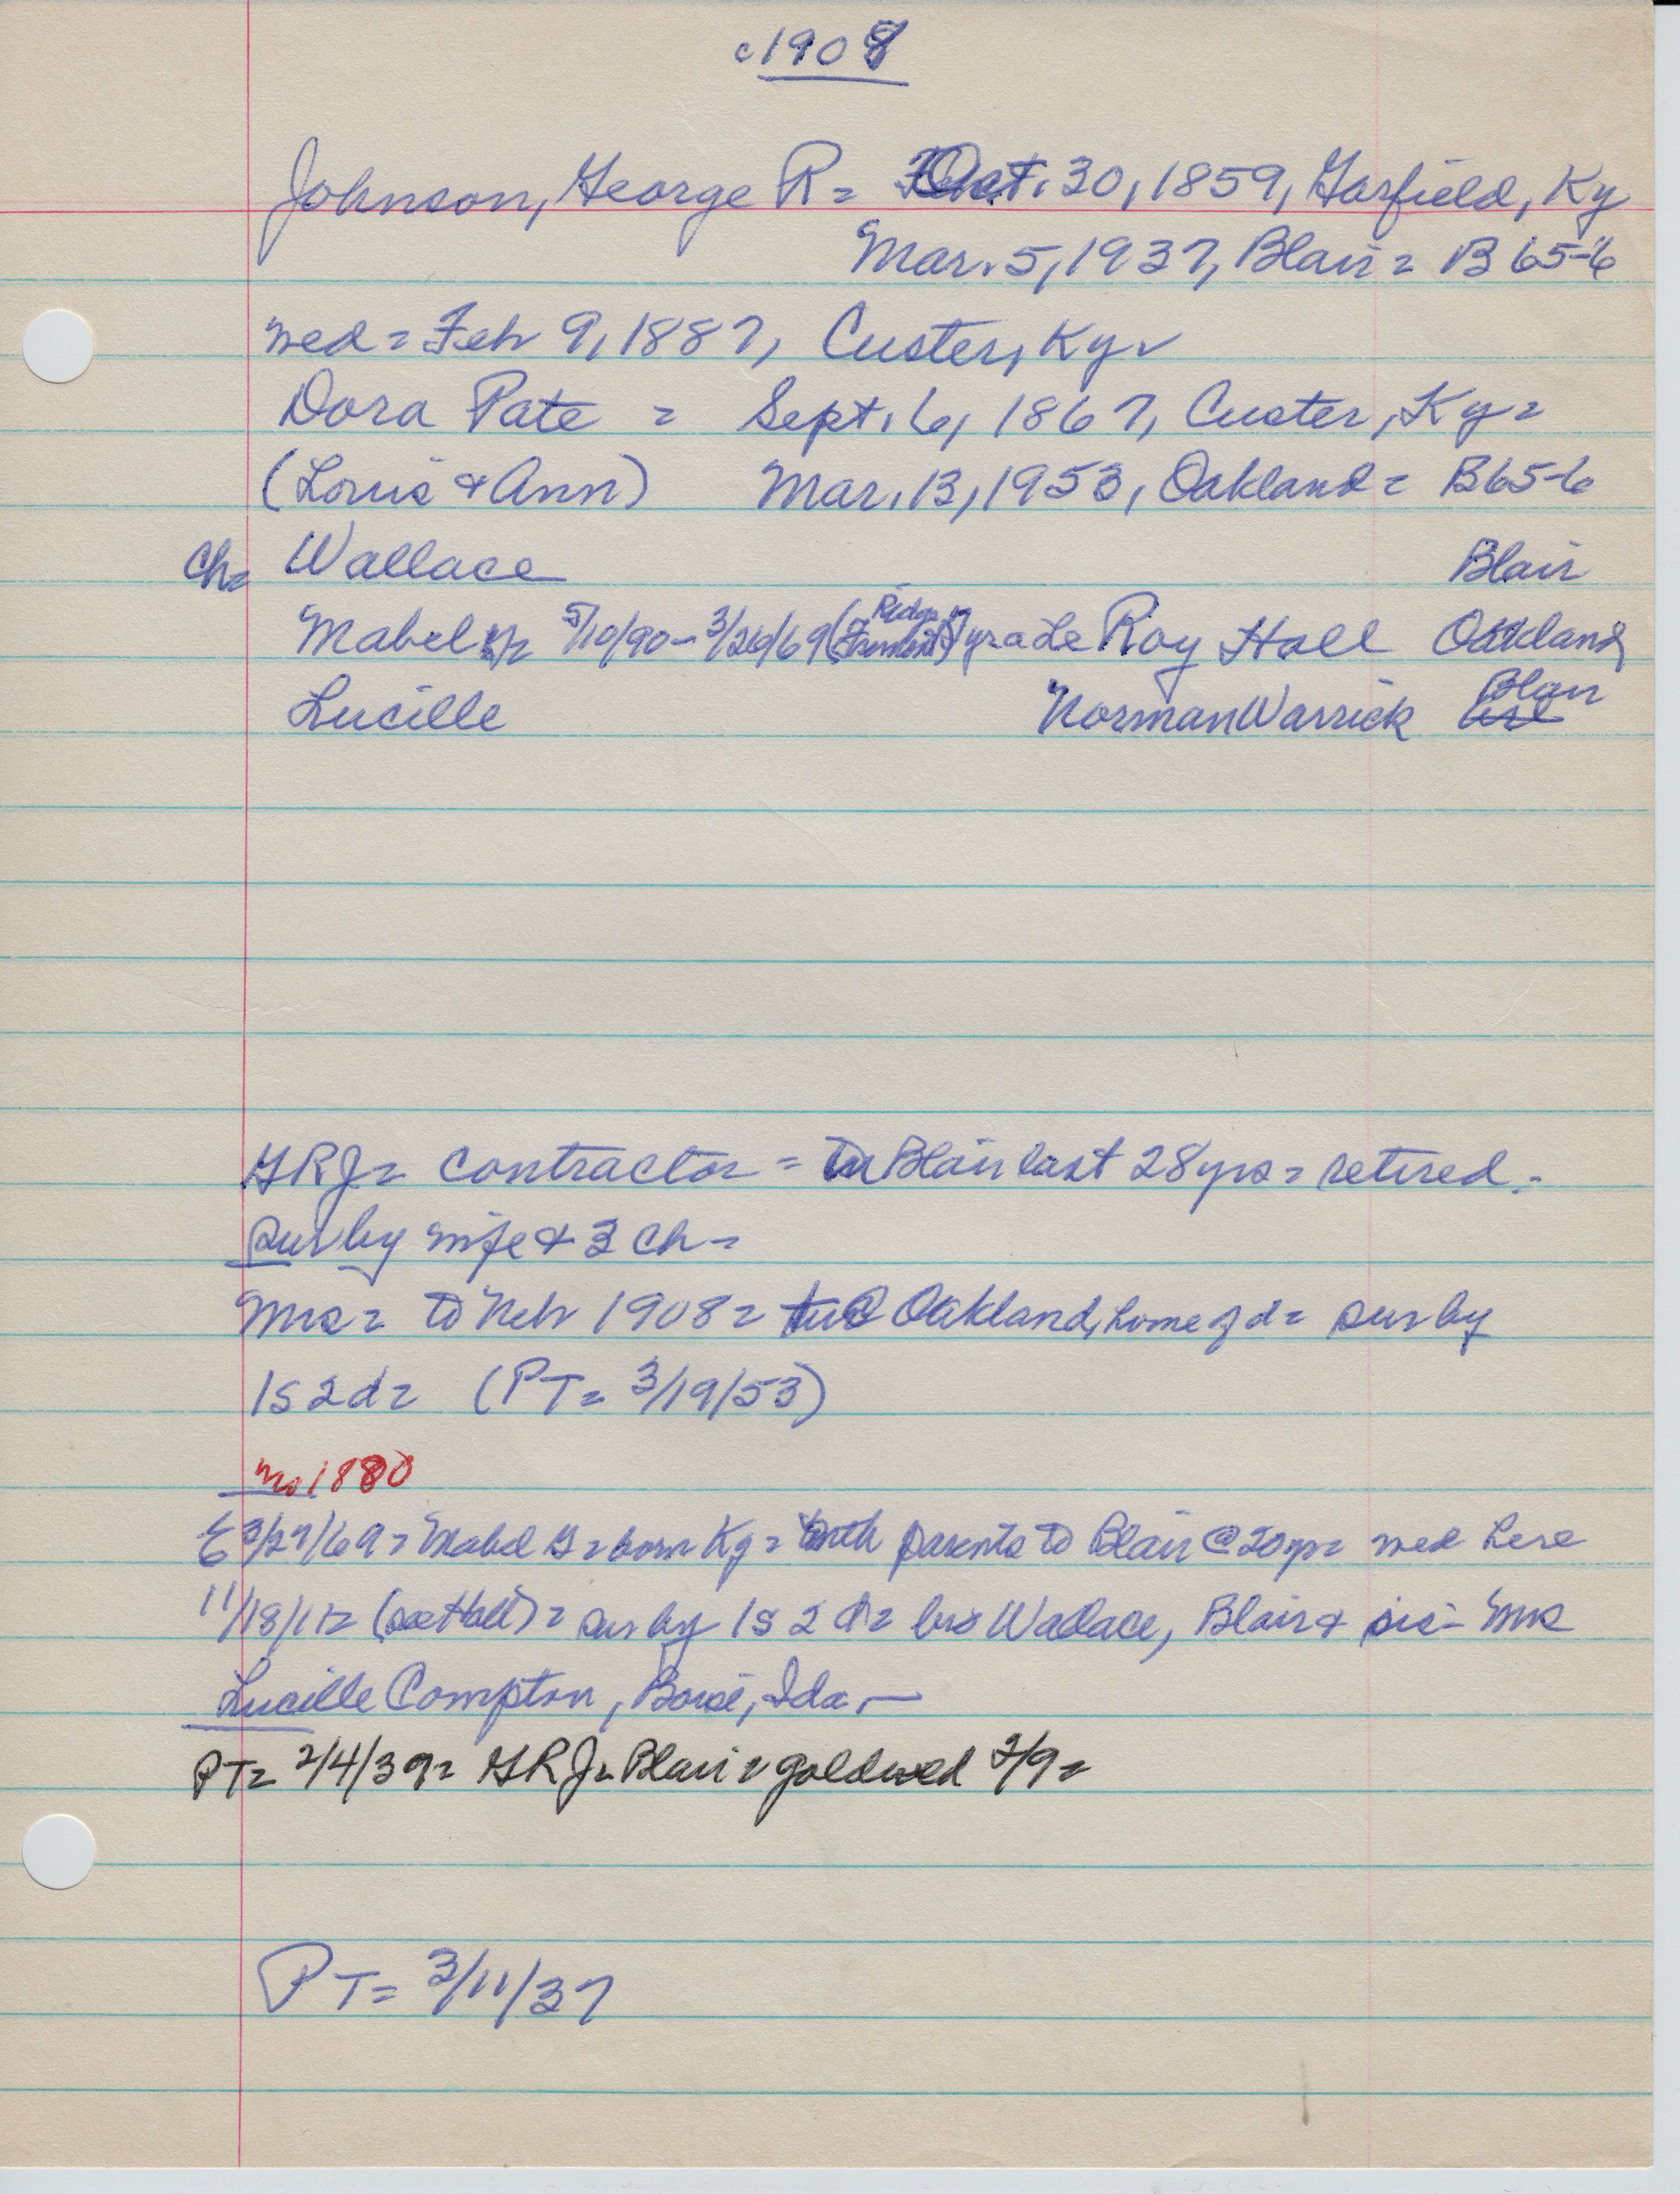 c1908
Johnson, George R= Oct. 30, 1859, Garfield, Ky
Mar. 5, 1937, Blair= B 65-6
wed= Feb 9, 1887, Custer, Ky
Dora Pate = Sept. 6, 1867, Custer, Ky=
(Louis & Ann) Mar. 13, 1953, Oakland= B65-6
Ch= Wallace Blair
Mabel 5/10/90-3/26/69 (Ridge Fremont) Roy Hall Oakland
Lucille Norman Warrick Blair
GRJ= contractor = Blair last 28 yrs= retired.-
sur by wife & 3 ch-
Mrs= to Neb 1908= Oakland, home of d= sur by
1s 2d= (PT= 3/19/53)
1880
E 3/27/69= Mabel G= born Ky= with parents to Blair @ 20 yr= wed here
11/18/11= (see Hall)= sur by 1s 2 d= bro Wallace, Blair & sis- Mrs
Lucille Compton, Boise, Ida-
PT= 2/4/37= GRJ= Blair= goldwed 2/9=
PT= 3/11/37